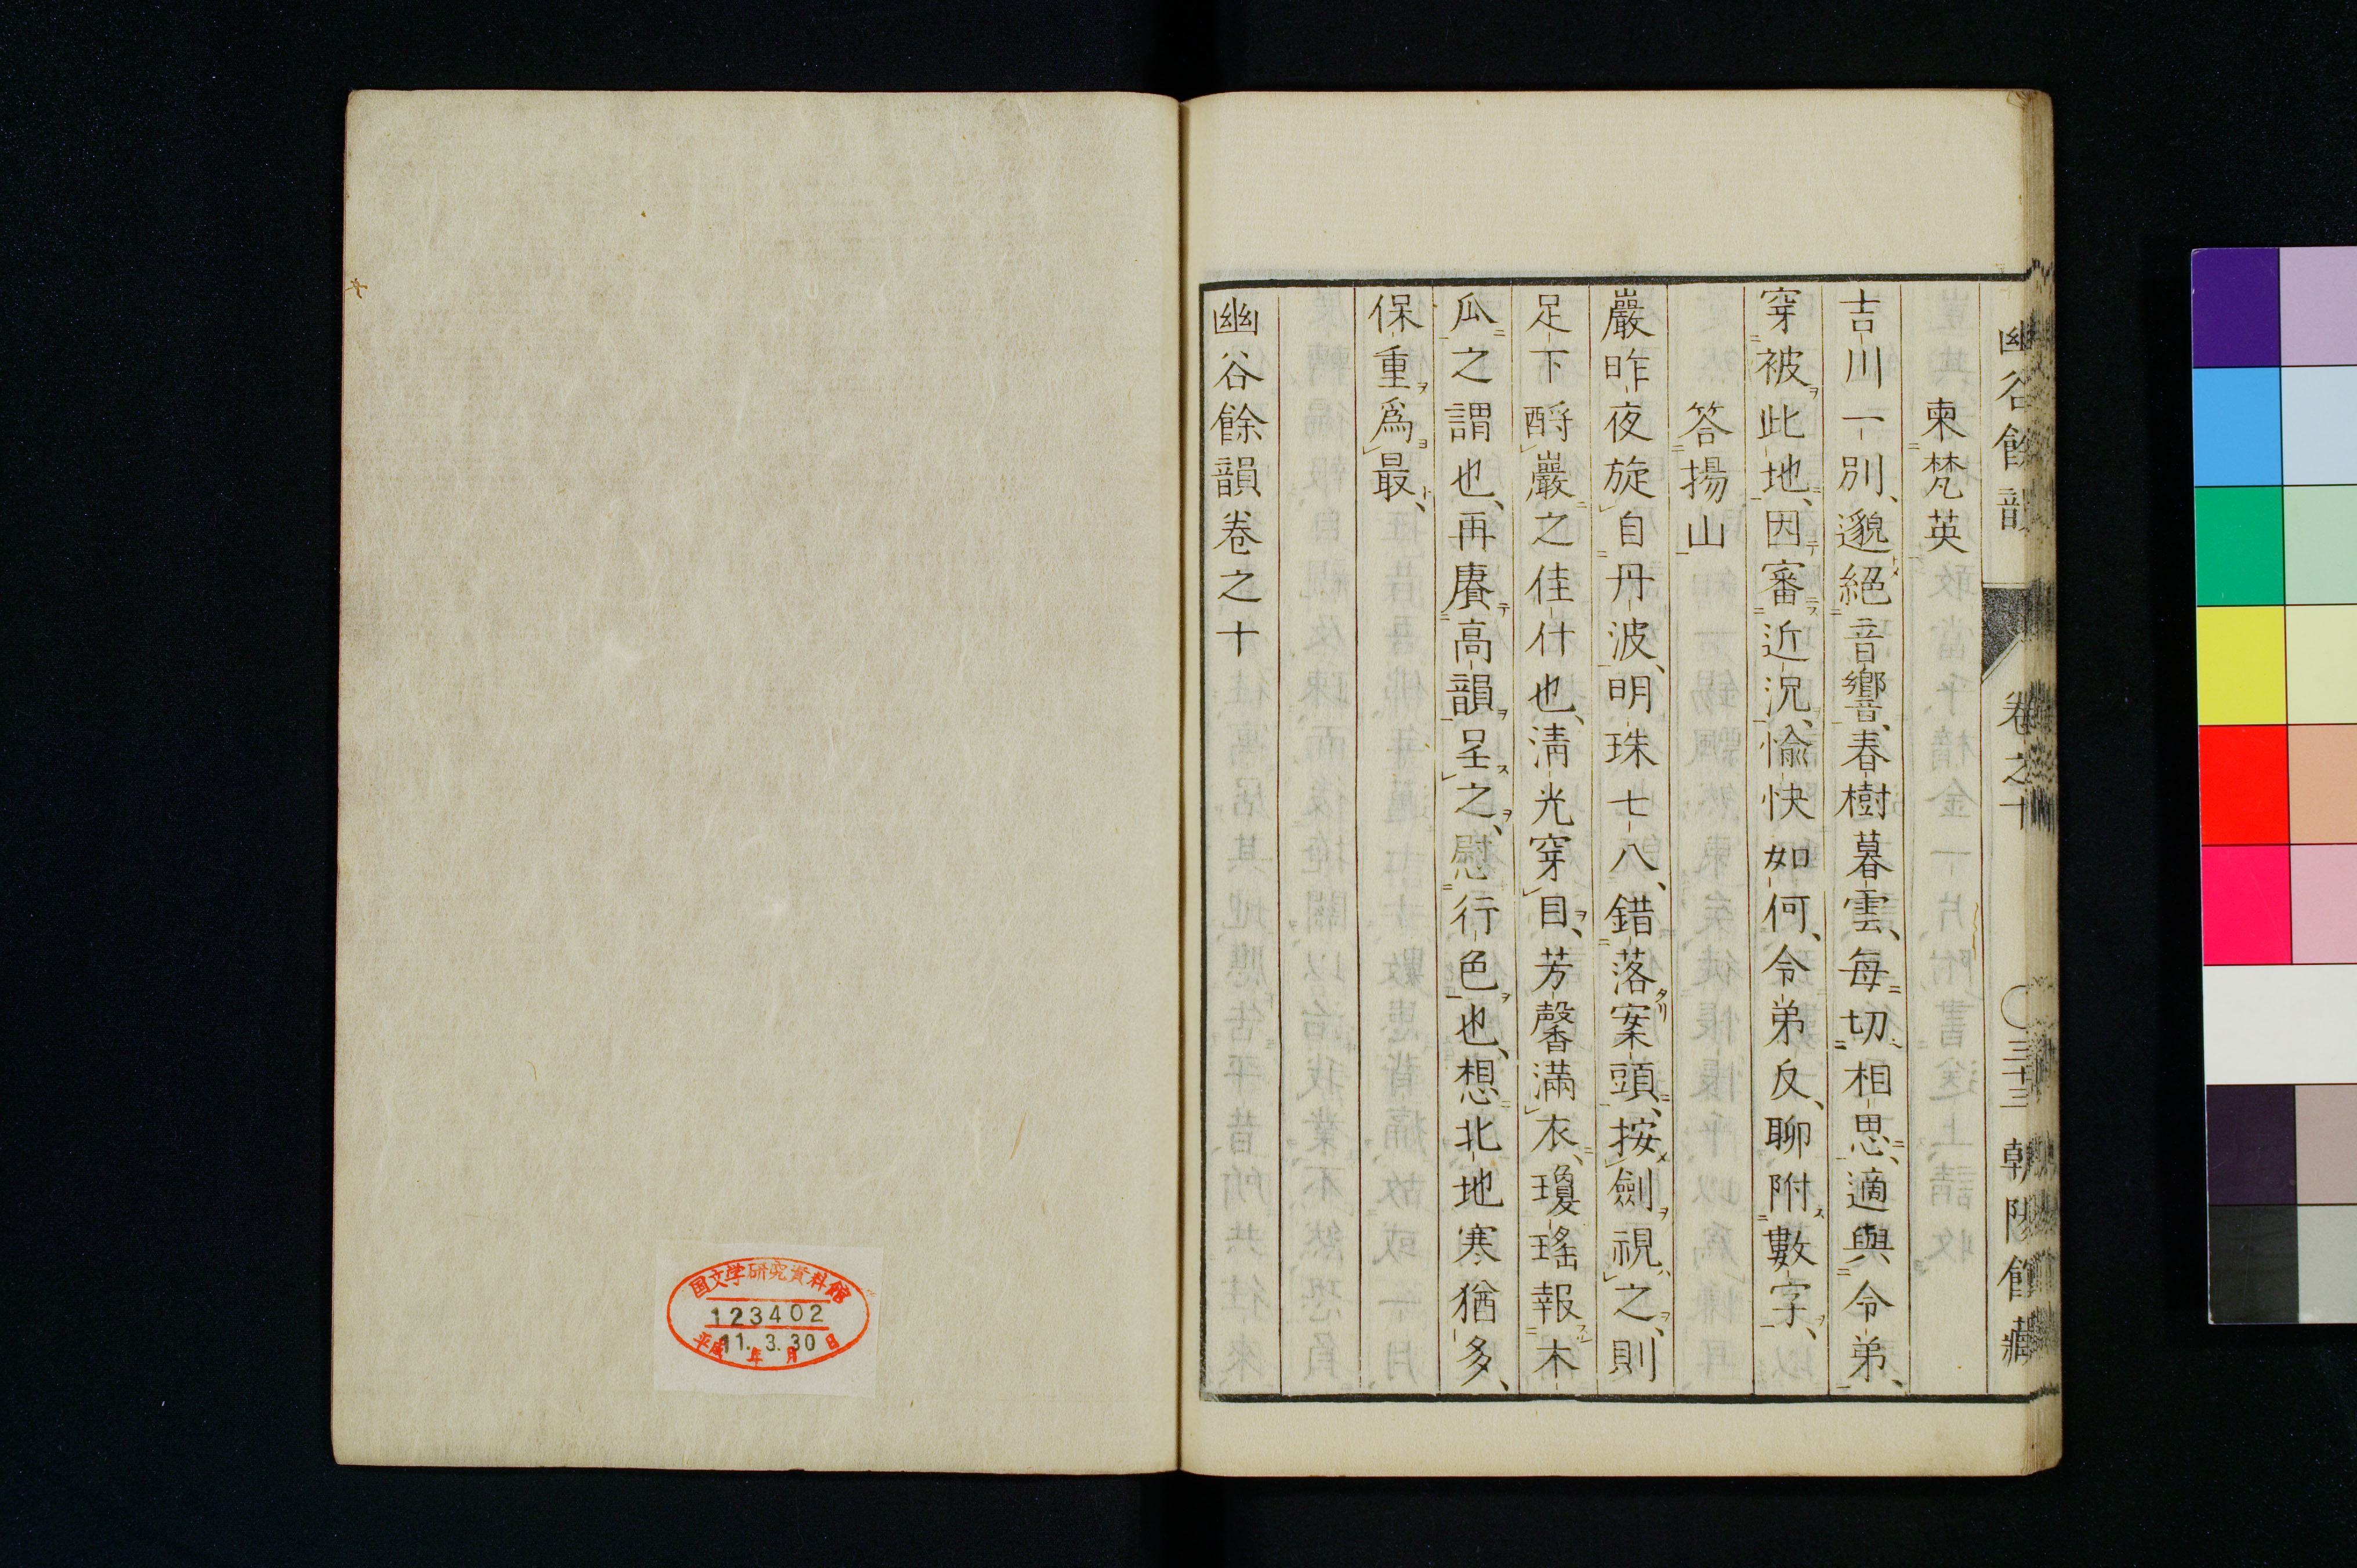 柬梵英
吉川一別、邈絕音響、春樹暮雲、每切相思、適與令弟、
穿被此地、因審近況、愉快如何、令弟反、聊附數字、
答揚山
巖昨夜旋自丹波、明珠七八、錯落案頭、按劍視之、則
足下酹巖之佳什也、淸光穿目、芳馨滿衣、瓊瑤報木
瓜之謂也、再賡高韻呈之、慰行色也、想北地寒猶多、
保重爲最、
幽谷餘韻卷之十
幽谷餘韻 卷之十 三十三 朝陽館藏
国文学研究資料館
123402
平成11年3月30日